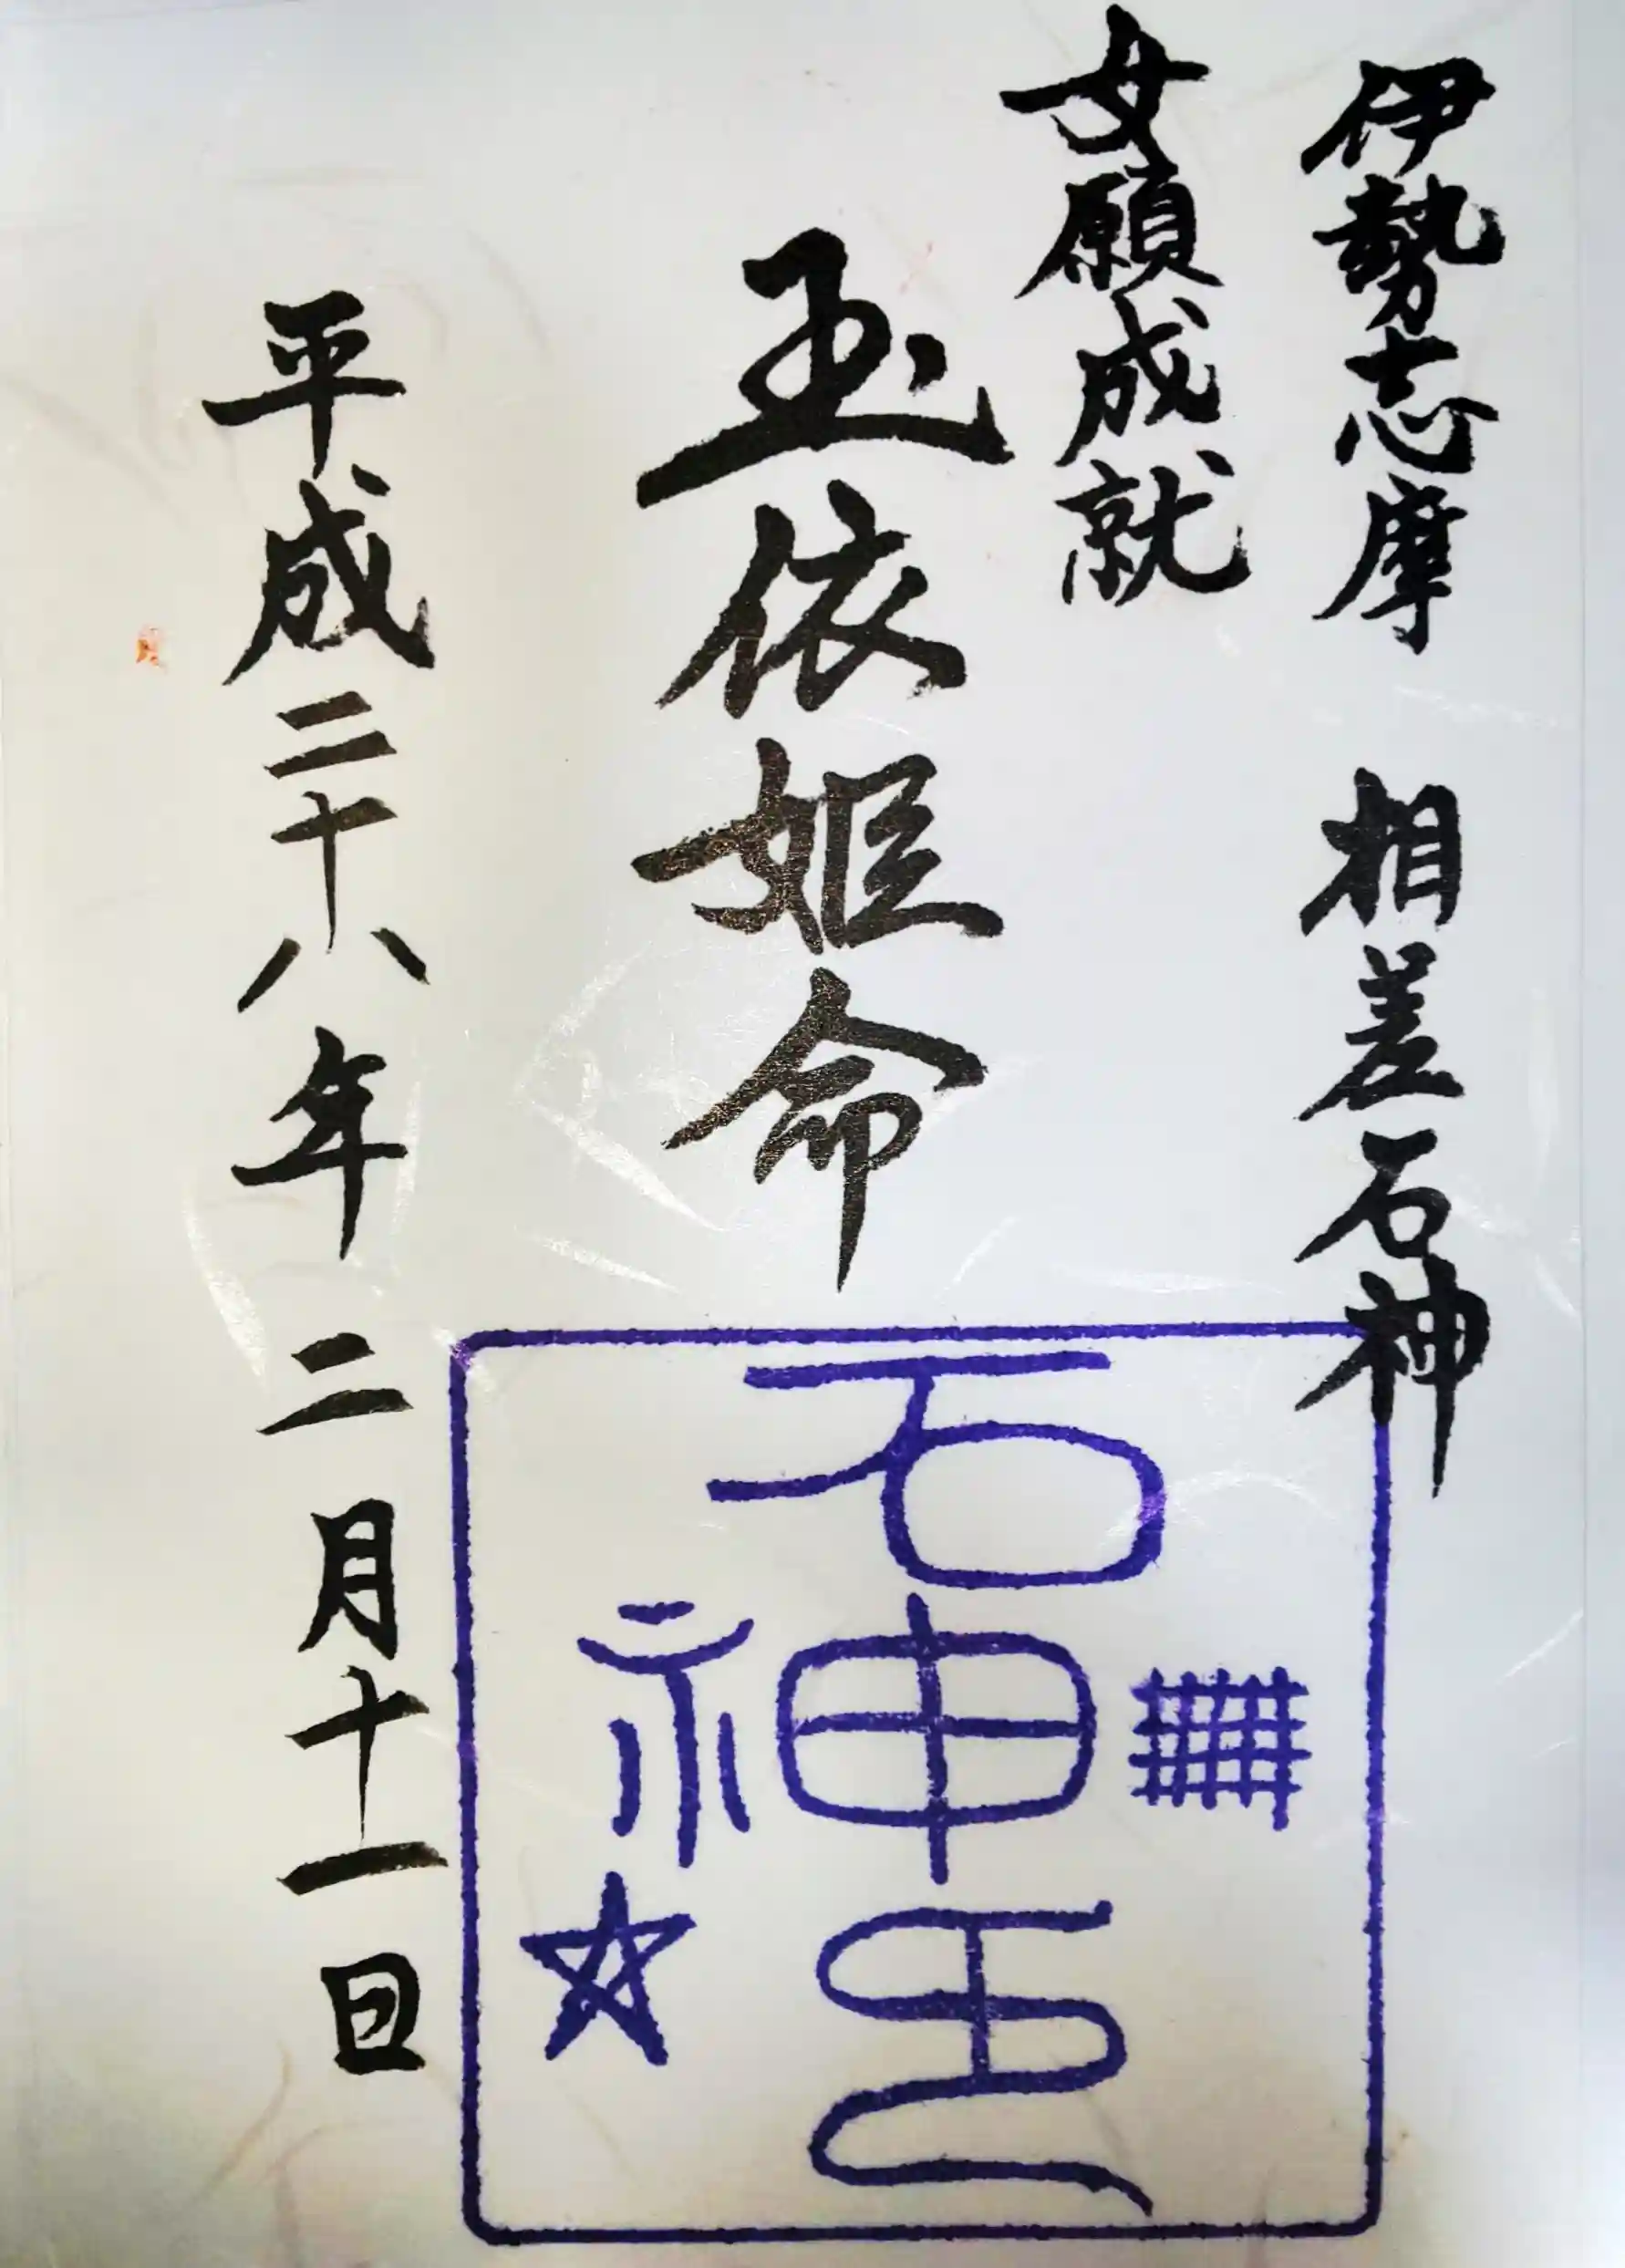 伊勢志摩 相差石神
女願成就
玉依姫命
平成二十八年 二月十一日
石神